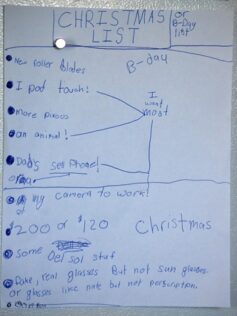 CHRISTMAS LIST
or B-Day list
B-day
New roller blades
I pod touch!
More
I want most
an animal!
Dad's Phone!
my camera to work!
$200 or $120
Christmas
some Del sol stuf
real glasses But not sun glasses
or glasses like nate but not perscription.